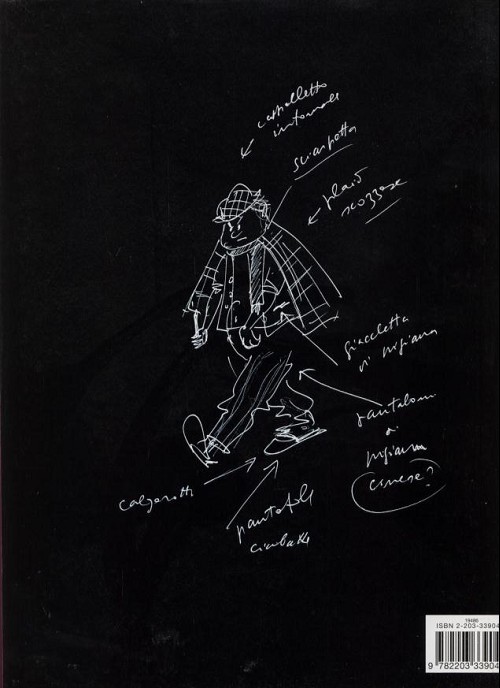 cappelletto
intonato
sciarpotta
plaid
scozzese
giacchetta
di pigiama
pantaloni
di
pigiama
cinese?
calzerotti
pantofole
ciabatte
19486
ISBN 2-203-33904
9 782203 33904